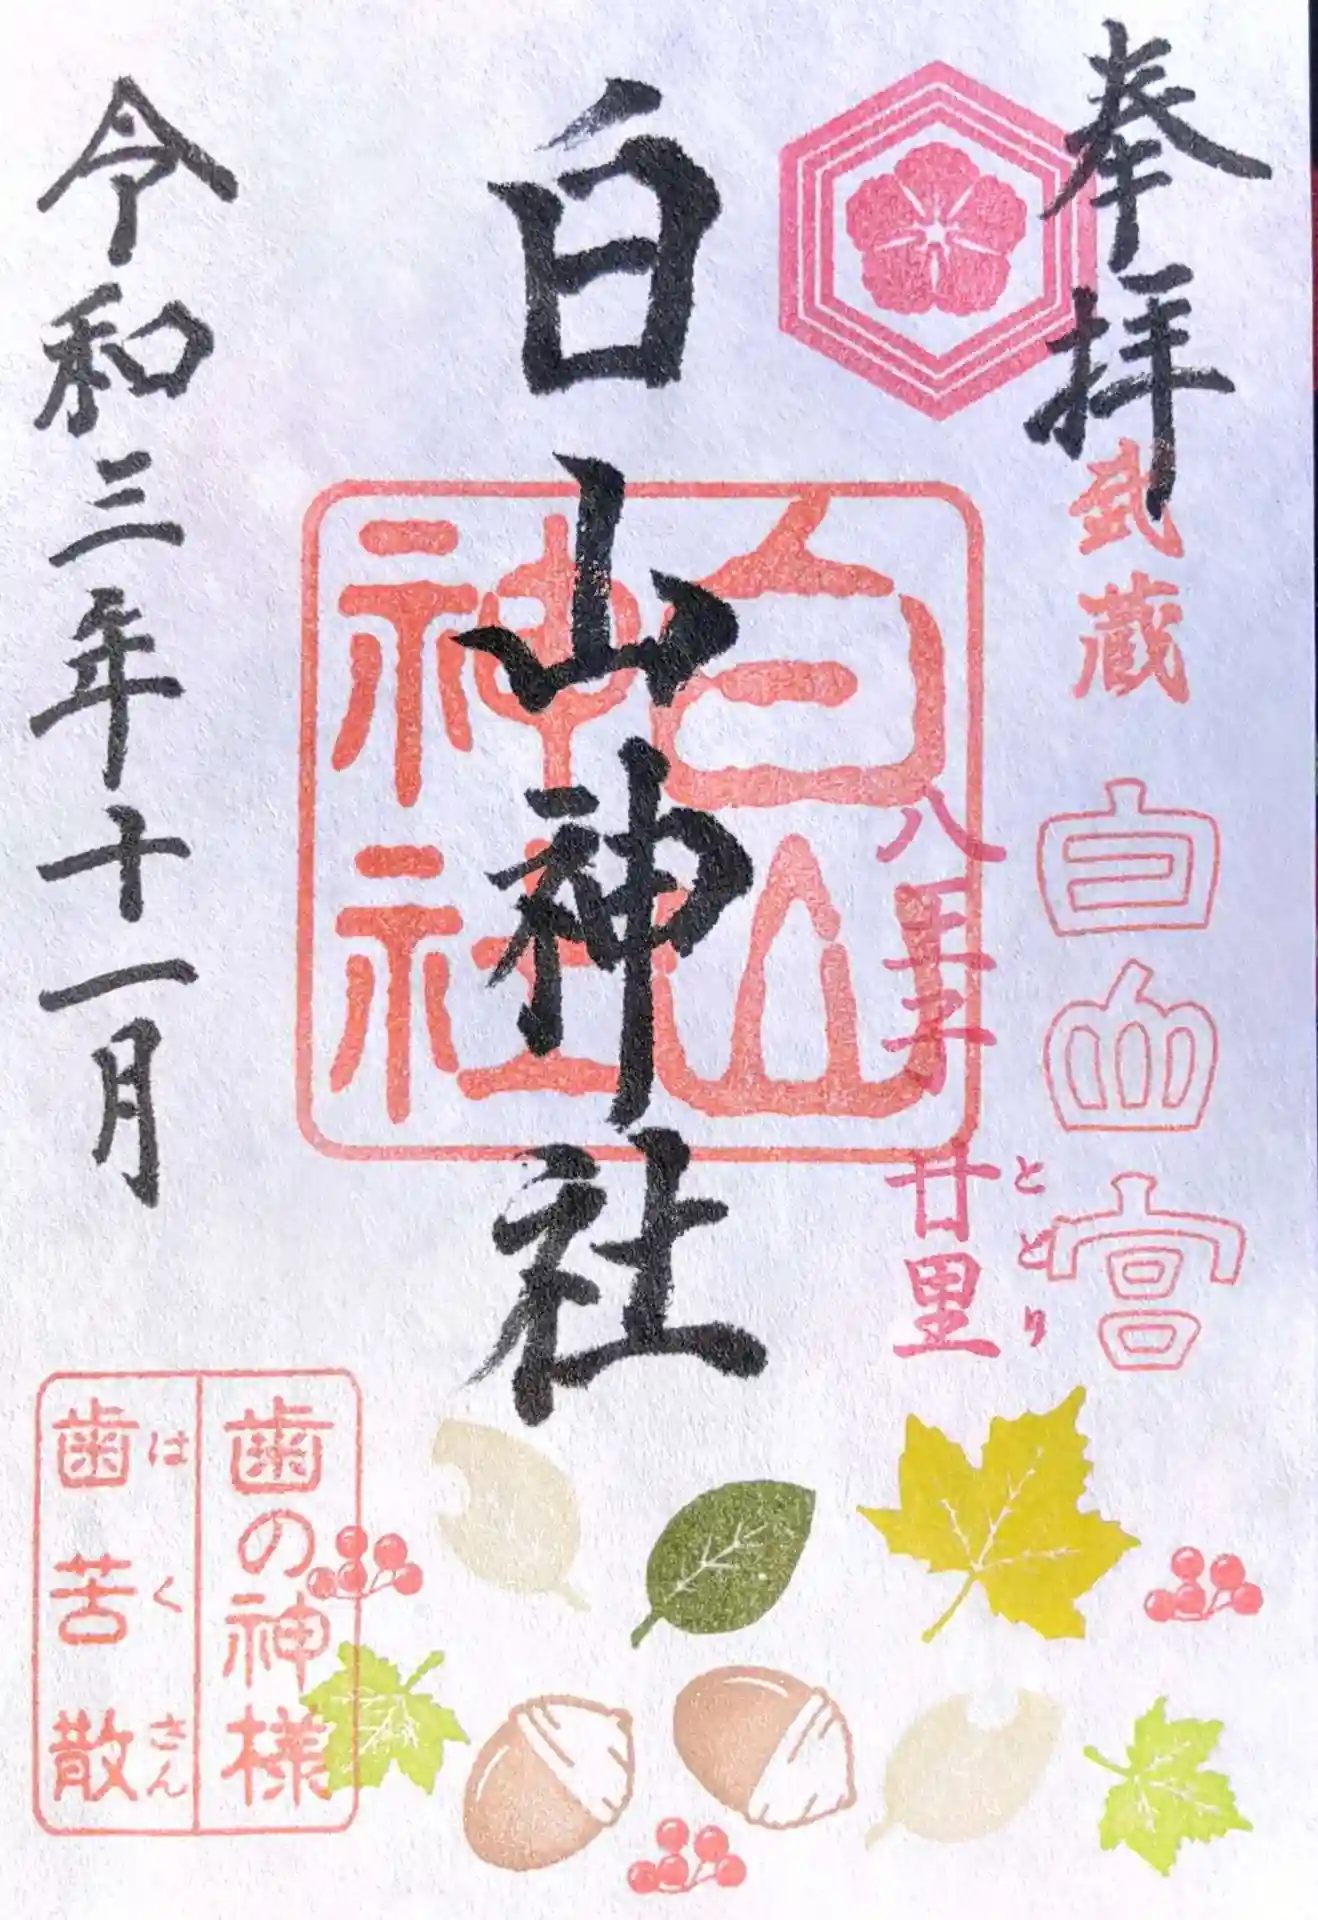 奉拝
武蔵
白山宮
八王子 廿里
ととり
白山神社
白山
神社
令和三年十一月
歯の神様
はくさん
歯苦散